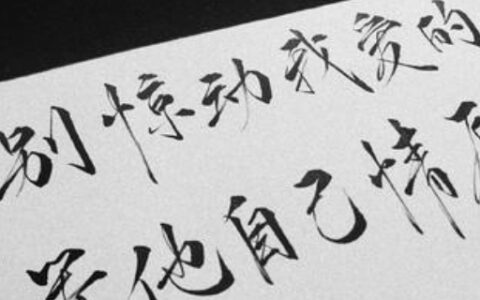 别惊动我爱的
等他自己情愿